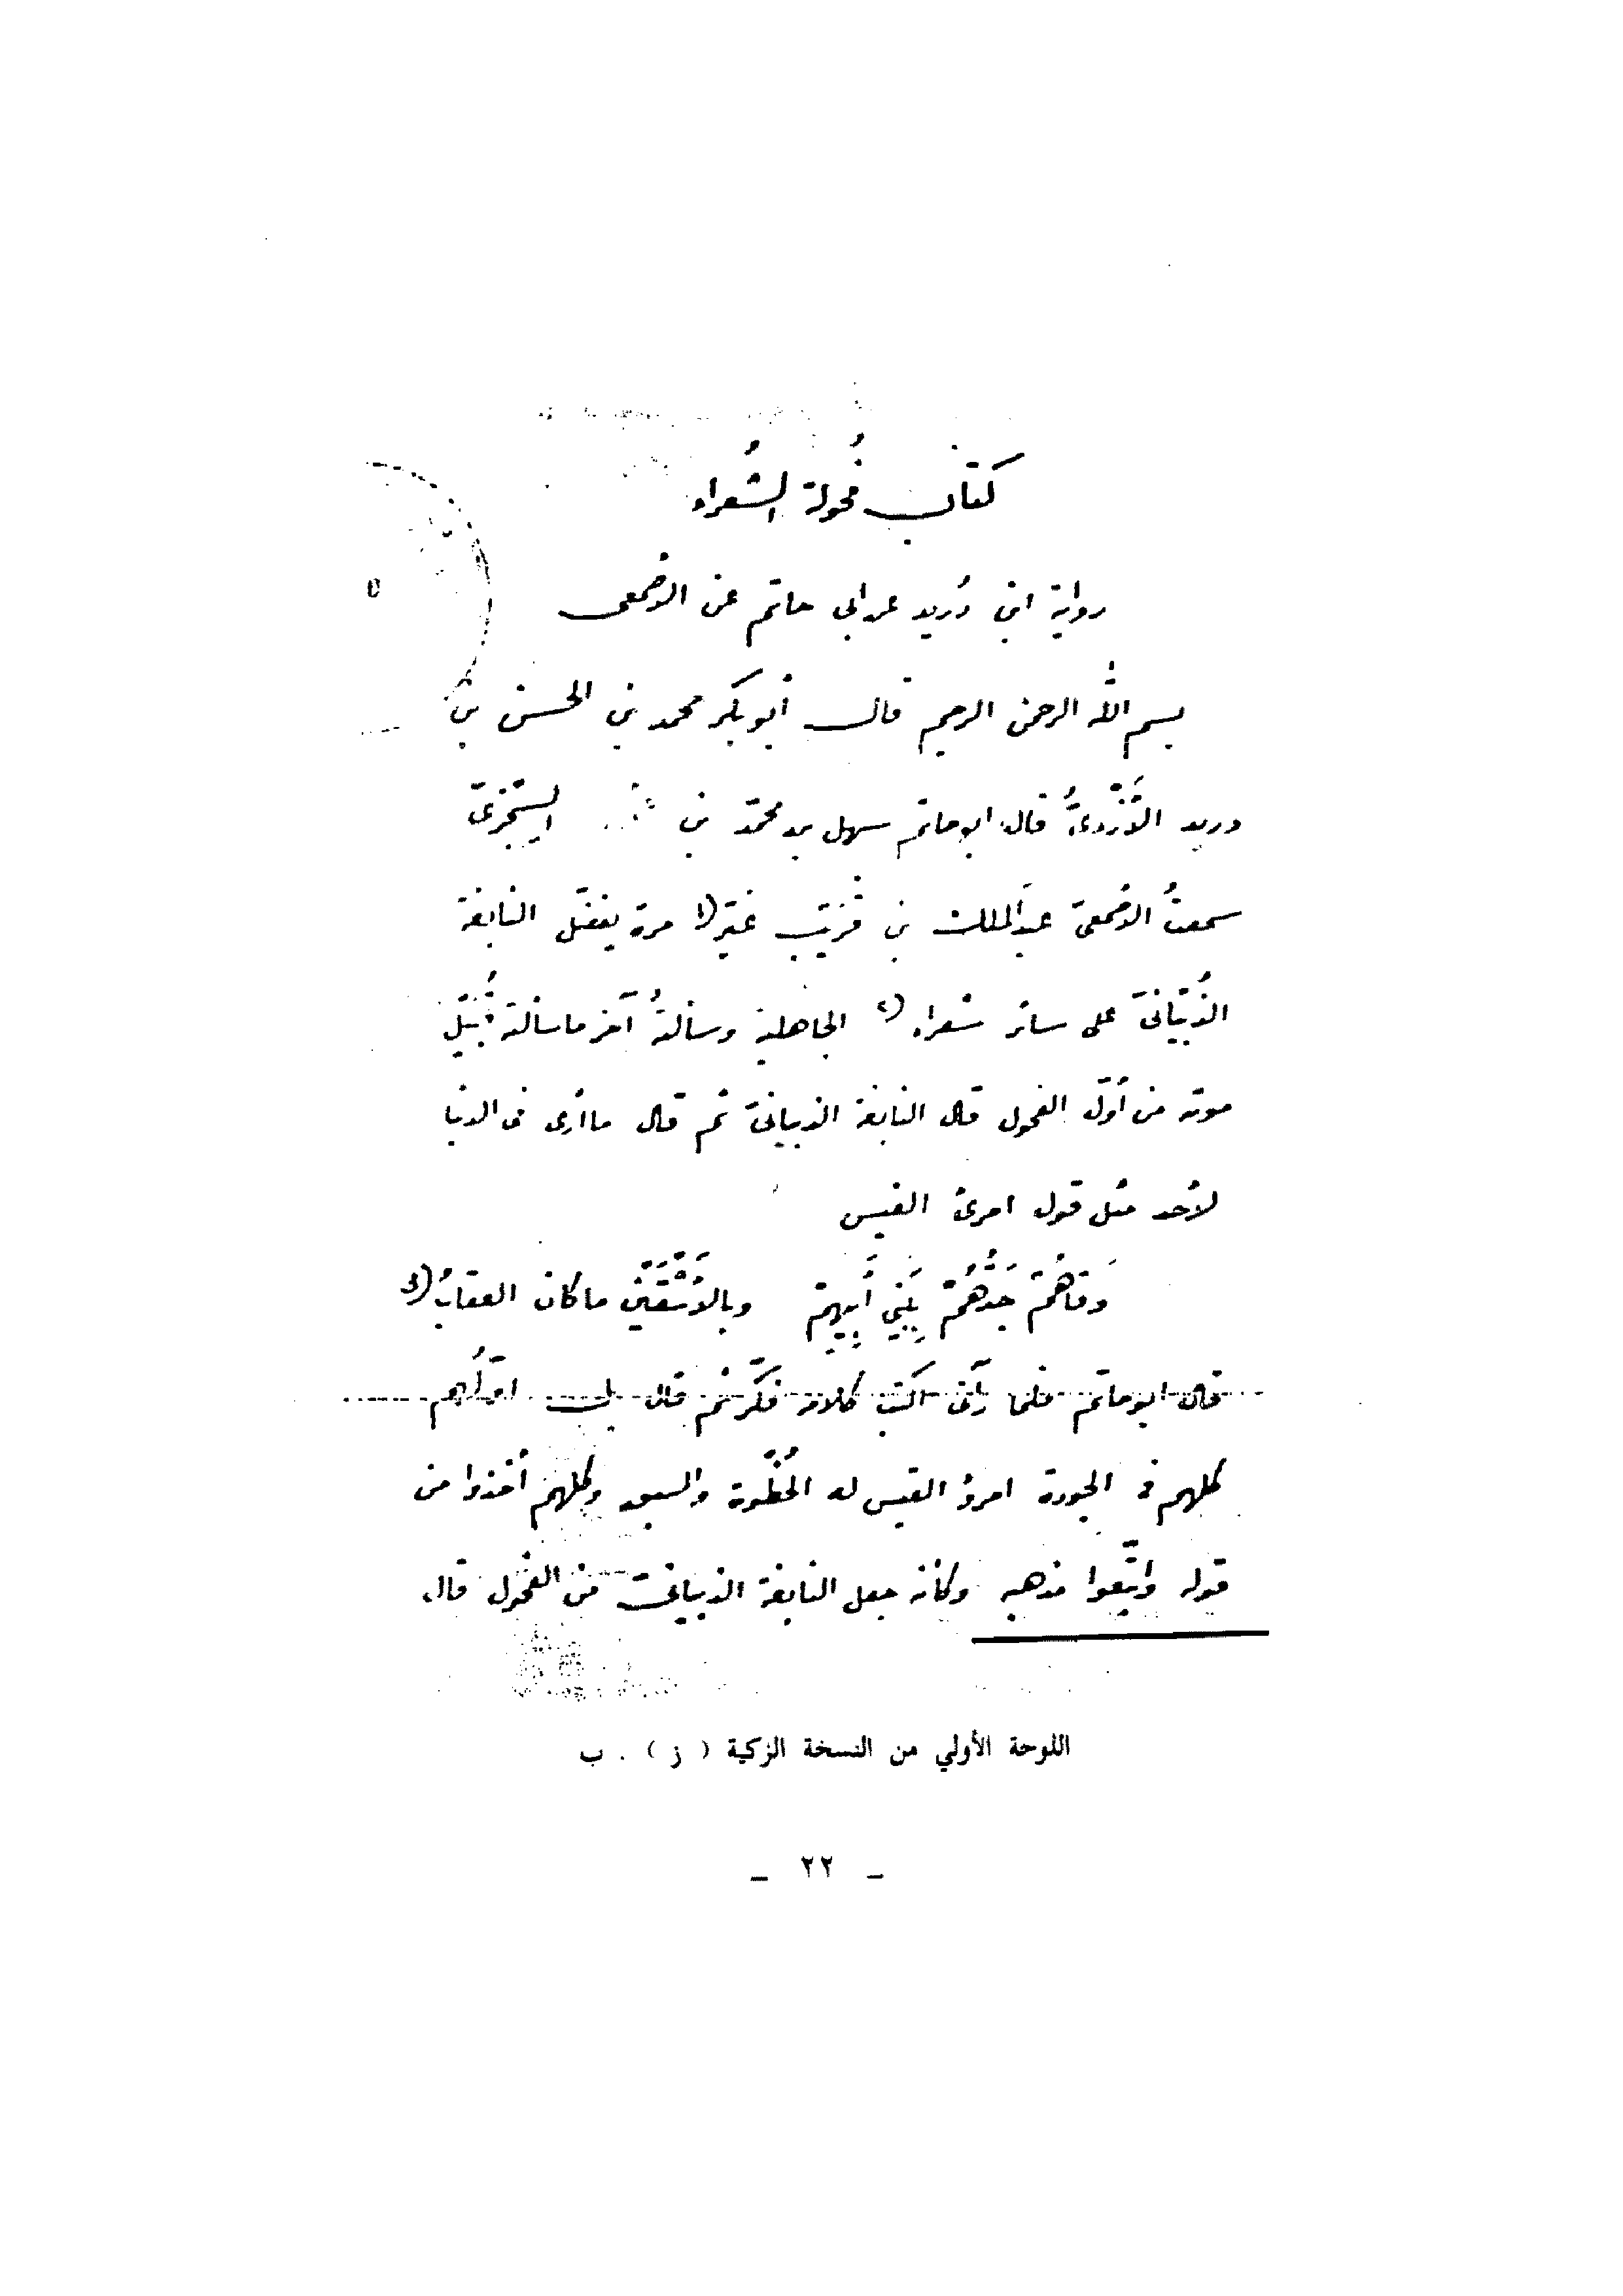 كتاب فُحولة الشُعراء
رواية ابن دُريد عن ابى حاتم عن الأصمعى
بسم الله الرحمن الرحيم قال أبو بكر محمد بن الحسن بن
دريد الأَزْدىُّ قال ابو حاتم سهل بن محمّد بن السِّجْزىّ
سمعتُ الأصمعىّ عبدَ الملك بن قُرَيْب غير(١ مرة يفضّل النابغة
الذُّبْيانىّ على سائر شعراء(٢ الجاهلية وسألتُه آخر ما سألته قُبَيْل
موته من أوّل الفحول قال النابغة الذبيانىّ ثم قال ما أرى فى الدنيا
لأحد مثل قول امرئ القيس
وَقاهُمْ جَدُّهُمْ بِبَنِي أَبِيهِمْ وبالأَشْقَيْنَ ما كان العقابُ(٤
قال ابو حاتم فلما رآنى اكتب كلامه فكّر ثم قال بل اوّلُهم
كلهم فى الجودة امرؤ القيس له الحُظْوة والسبق وكلهم أخذوا من
قوله واتّبعوا مذهبه وكأنه جعل النابغة الذبيانىّ من الفحول قال
اللوحة الأولي من النسخة الزكية ( ز ) . ب
_ ٢٢ _